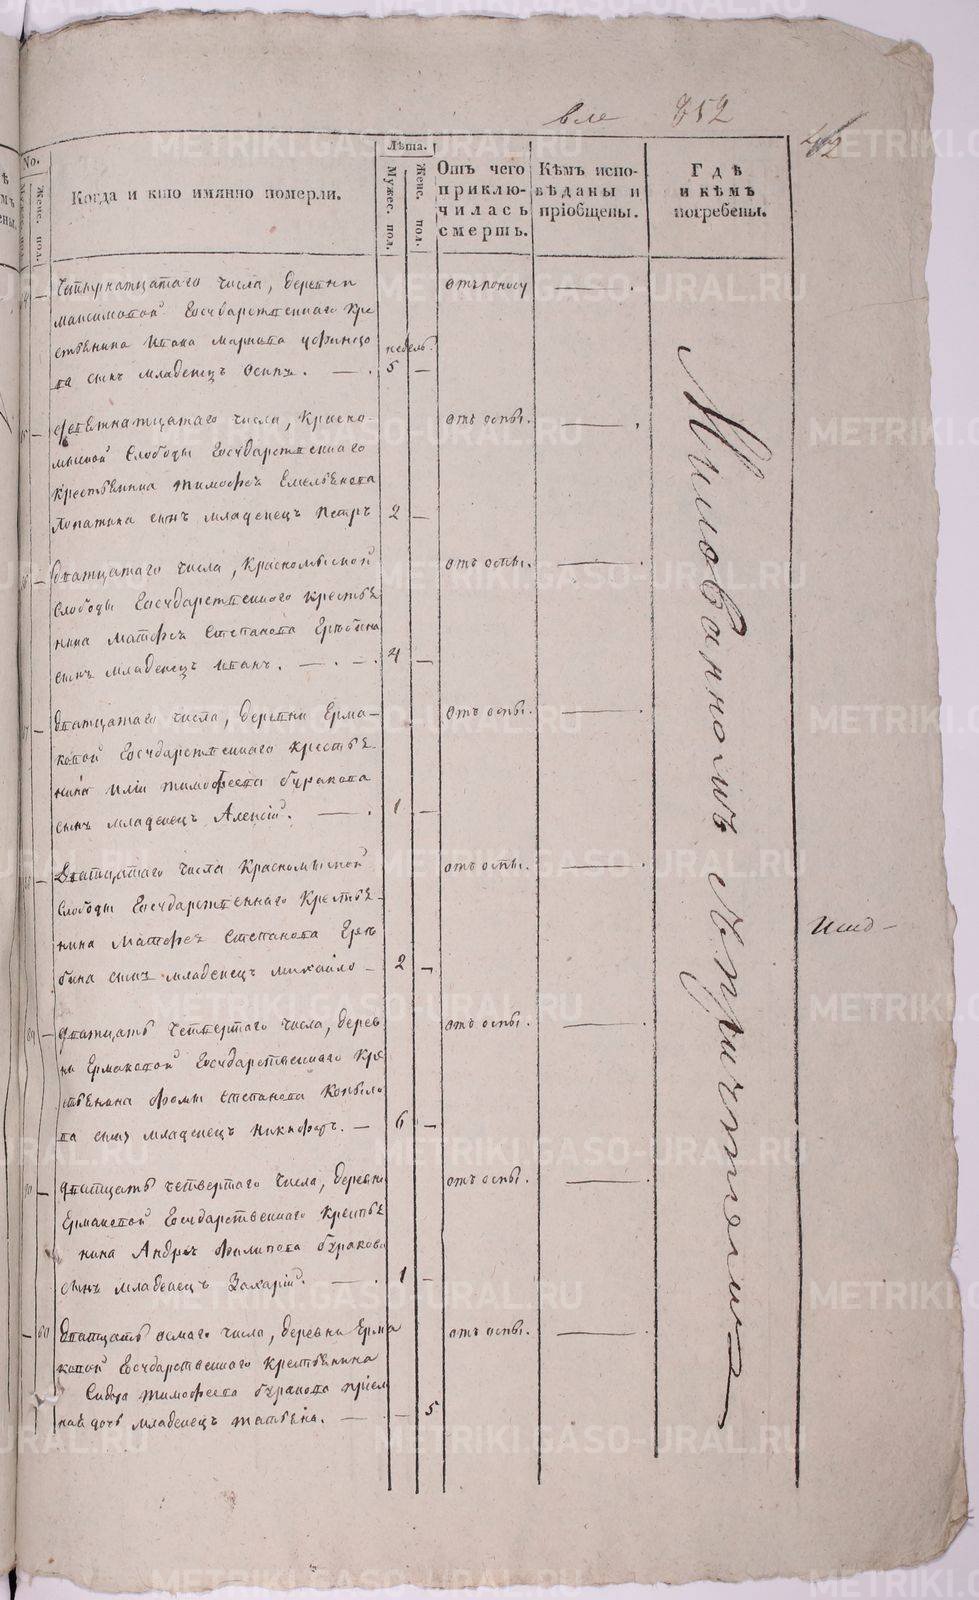 852
42
No.
Женс. пол.
Когда и кто имянно померли.
Лѣта.
Мужес. пол.
Женс. пол.
Отъ чего приключилась смерть.
Кѣмъ исповѣданы и пріобщены.
Гдѣ и кѣмъ погребены.
Четырнатцатаго числа, деревни
Максимовой Государственнаго кре
стьянина Ивана Маркова
ва сынъ младенецъ Осипъ. — .
недель.
5 —
отъ поносу — .
Девятнатцатаго числа, Красно-
мыской Слободы Государственнаго
крестьянина Тимофея Емельянова
Лопатина сынъ младенецъ Петръ
2 —
отъ оспы. — .
Дватцатаго числа, Красномыской
Слободы Государственнаго крестья
нина Матфея Степанова Ерябина
сынъ младенецъ Иванъ. — . — .
4 —
отъ оспы. — .
Дватцатаго числа, деревни Ерма-
ковой Государственнаго крестья
нина Иліи Тимофеева Буракова
сынъ младенецъ Алексій. — .
1 —
отъ оспы. — .
Дватцатаго числа Красномыской
Слободы Государственнаго Крестья-
нина Матфея Степанова Еря
бина сынъ младенецъ Михайло —
2 —
отъ оспы. — .
Дватцать четвертаго числа, дерев
ни Ермаковой Государственнаго кре
стьянина Фомы Степанова Копыло
ва сынъ младенецъ Никифоръ. —
6 —
отъ оспы. — .
Дватцать четвертаго числа, деревни
Ермаковой Государственнаго крестья
нина Андрея Филипова Буракова
сынъ младенецъ Захарій. — .
1 —
отъ оспы. — .
60
Дватцать осмаго числа, деревни Ерма
ковой Государственнаго крестьянина
Тимофеева Буракова прием
ная дочь младенецъ Татьяна. —
— 5
отъ оспы. — .
Миловановъ съ причтомъ